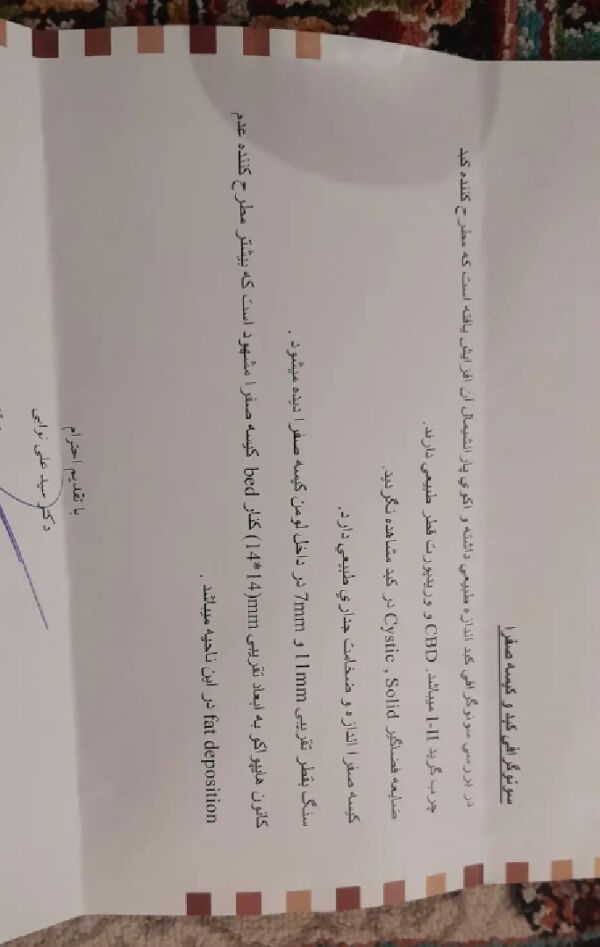 سونوگرافی کبد و کیسه صفرا
در بررسی سونوگرافی کبد اندازه طبیعی داشته و اکوی پارانشیمال آن افزایش یافته است که مطرح کننده کبد
چرب گرید I-II میباشد. CBD و وریدپورت قطر طبیعی دارند.
ضایعه فضاگیر Cystic , Solid در کبد مشاهده نگردید.
کیسه صفرا اندازه و ضخامت جداری طبیعی دارد.
سنگ بقطر تقریبی 11mm و 7mm در داخل لومن کیسه صفرا دیده میشود .
کانون هایپواکو به ابعاد تقریبی 14*14)mm) کنار bed کیسه صفرا مشهود است که بیشتر مطرح کننده عدم
fat deposition در این ناحیه میباشد .
با تقدیم احترام
دکتر سید علی نوابی